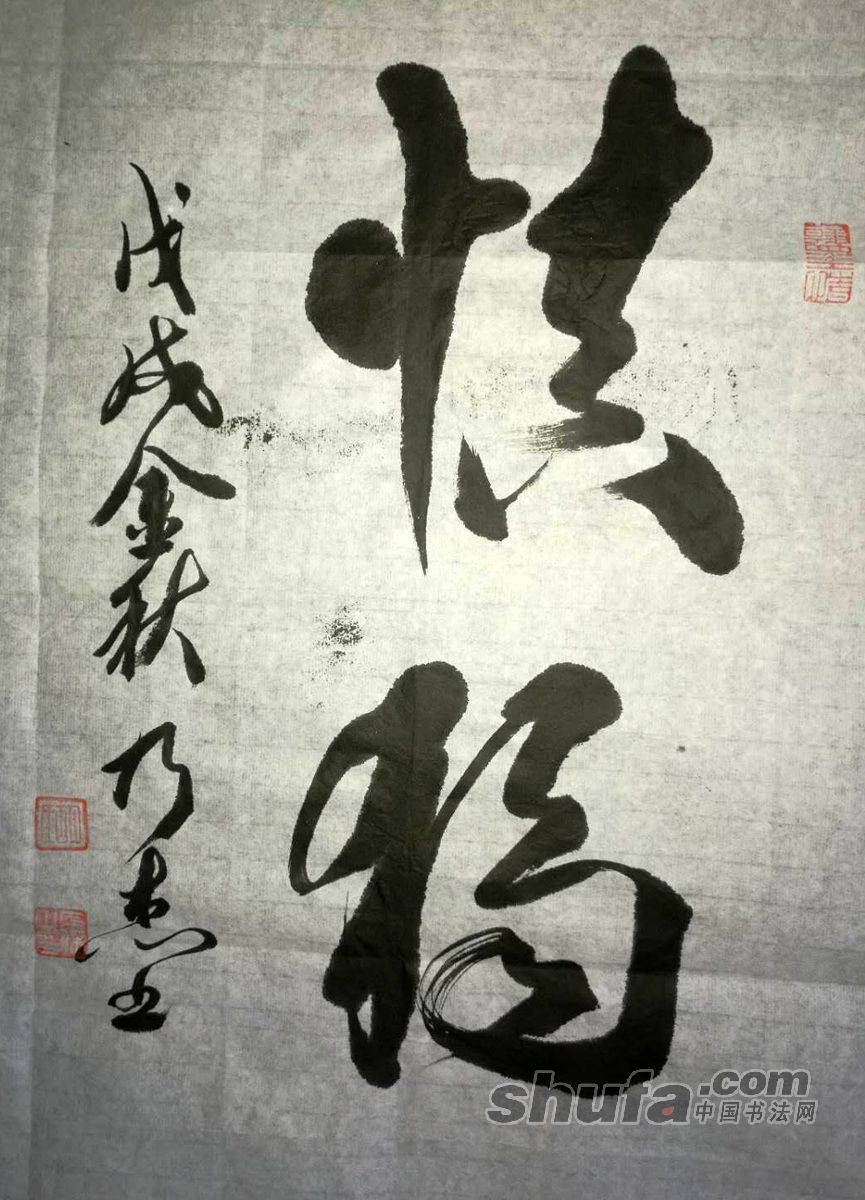 慎獨
戊戌金秋 乃杰书
shufa.com
中国书法网